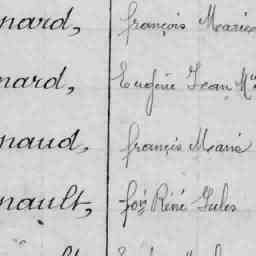 nard, françois Marie
nard, Eugène Jean M
naud, françois Marie
nault, René Jules